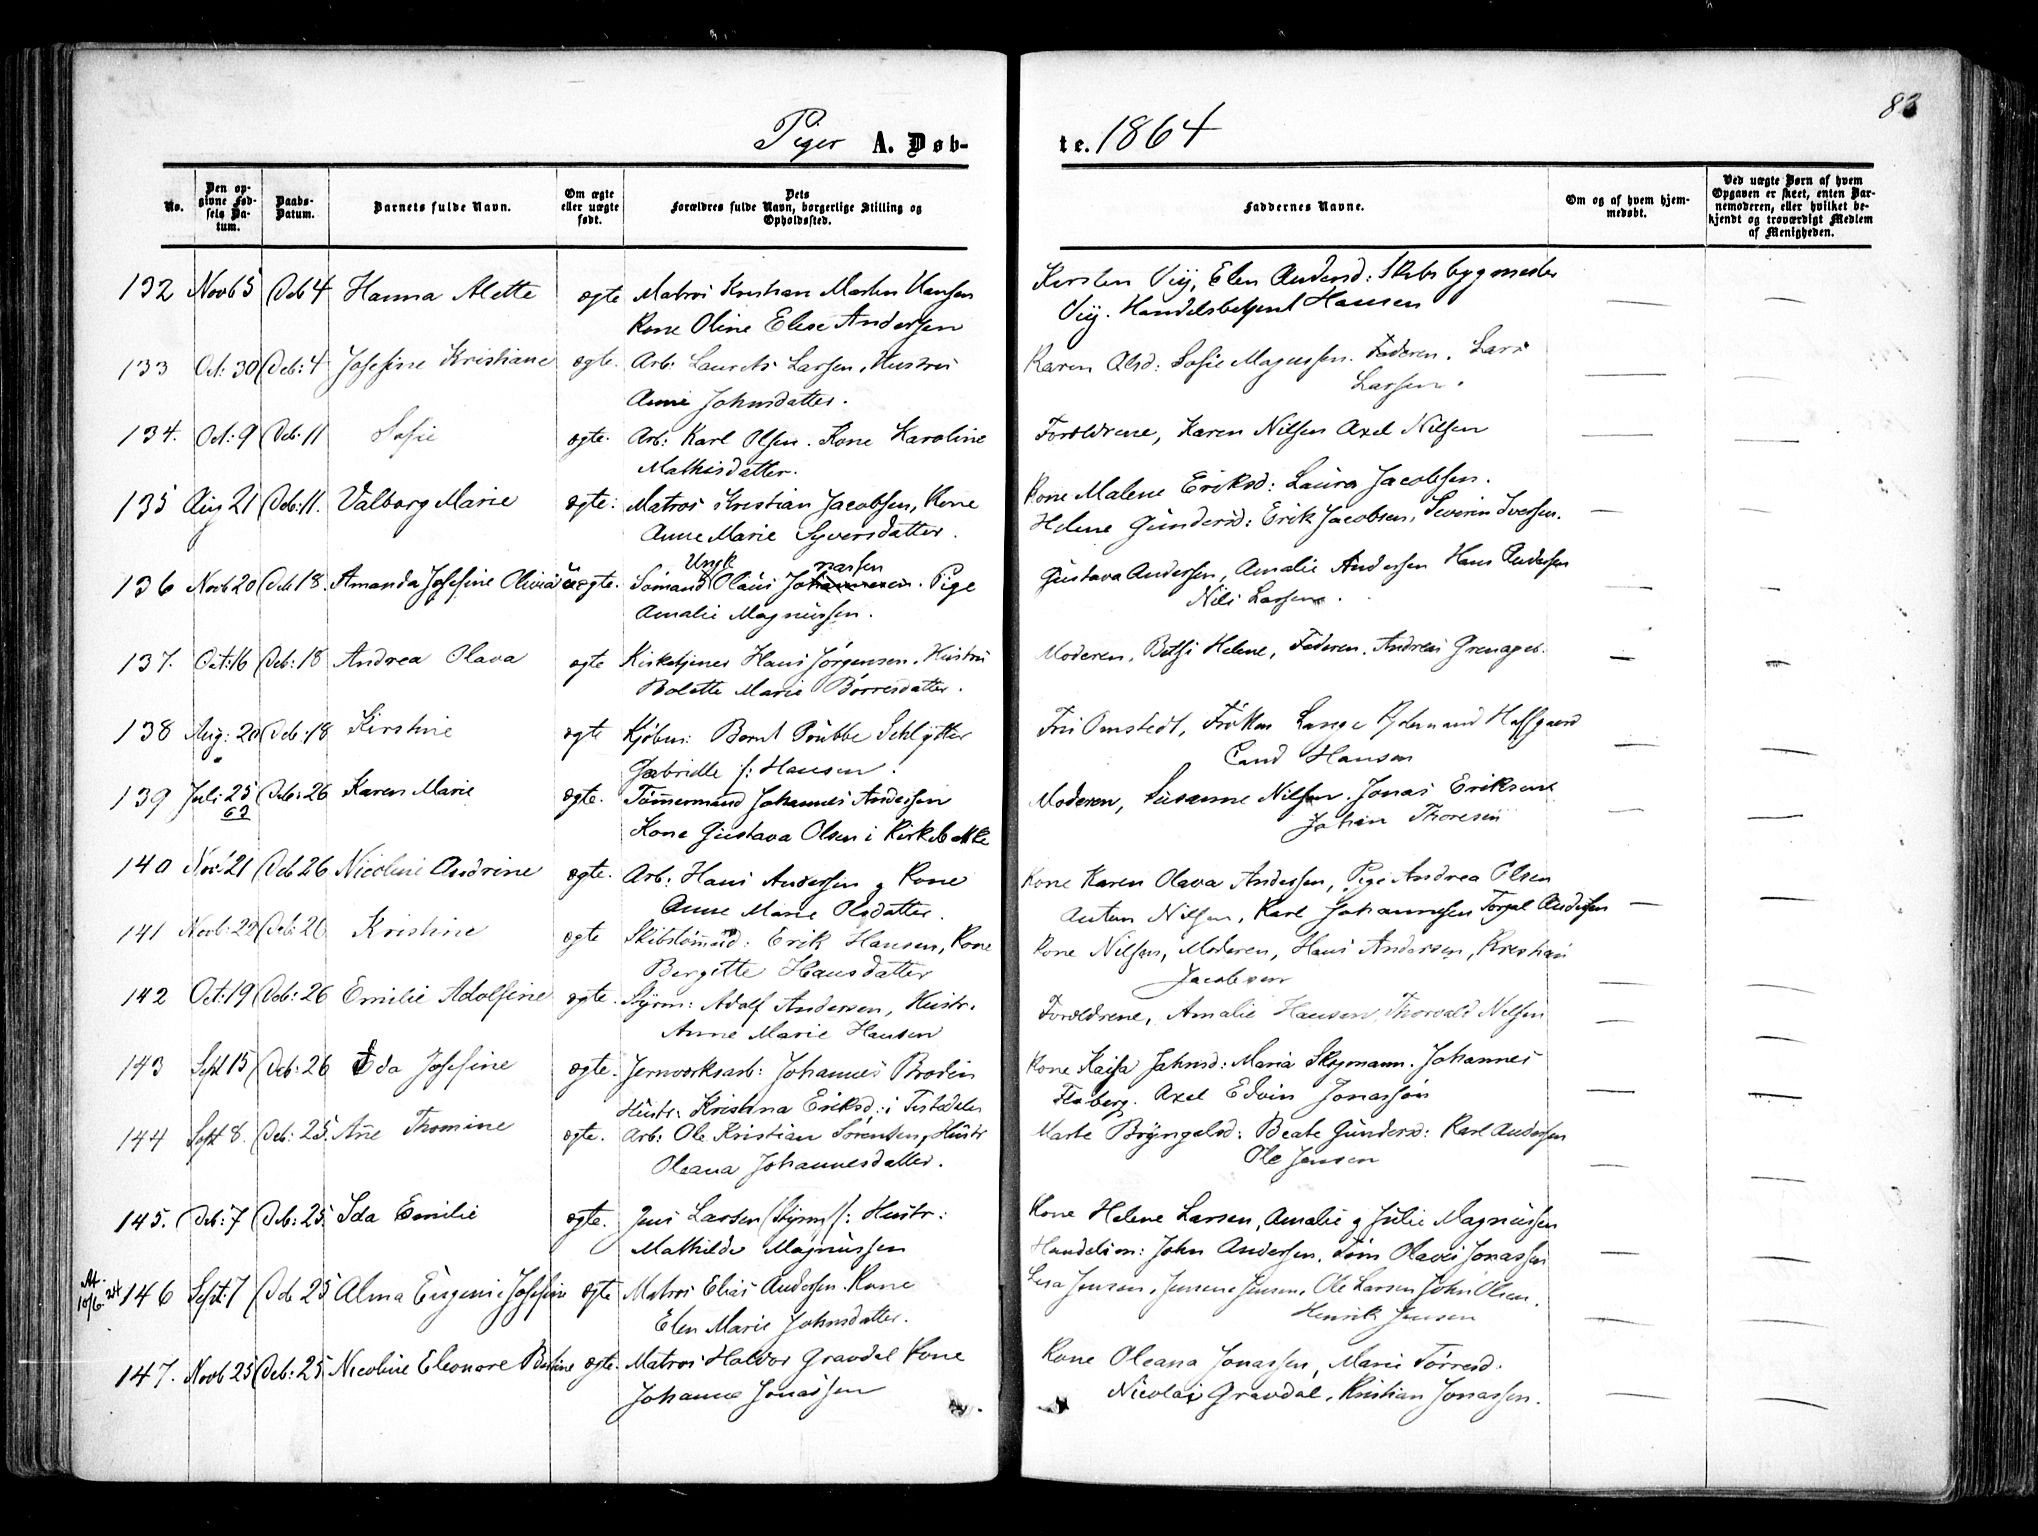 83
Piger A. Døb-
te. 1864
No.
Den op-
givne Fød-
sels Da-
tum.
Daabs-
Datum.
Barnets fulde Navn.
Om ægte
eller uægte
født.
Dets
Forældres fulde Navn, borgerlige Stilling og
Opholdssted.
Faddernes Navne.
Om og af hvem hjem-
medøbt.
Ved uægte Børn af hvem
Opgaven er skeet, enten Bar-
nemoderen, eller hvilket be-
kjendt og troværdigt Medlem
af Menigheden.
132 Novb 5 Deb 4 Hanna Alette ægte Matros Kristian Martin Hansen
Kone Oline Elise Andersen
Kirsten Viig, Elen Andersd: Skibsbygmester
Viig. Handelsbetjent Hansen
133 Oct: 30 Deb: 4 Josefine Kristiane ægte. Arb: Laurits Larsen, Hustru
Anne Johnsdatter.
Karen Olsd: Sofie Magnussen. Faderen. Lars
Larsen.
134. Oct: 9 Deb: 11 Sofie ægte. Arb: Karl Olsen. Kone Karoline
Mathisdatter.
Forældrene, Karen Nilsen Axel Nilsen
135 Aug 21 Deb: 11. Valborg Marie ægte: Matros Kristian Jacobsen, Kone
Anne Marie Syversdatter.
Kone Malene Eriksd: Laura Jacobsen.
Helene Gundersd: Erik Jacobsen, Severin Iversen.
136 Novb 20 Deb 18. Amanda Josefine Olivia uægte. Sømand Ungk Olaus Jo nassen. Pige
Amalie Magnussen.
Gustava Andersen, Amalie Andersen Hans Andersen
Nils Larsen.
137. Oct: 16 Deb: 18 Andrea Olava ægte Kirketjener Hans Jørgensen. Hustru
Bolette Marie Børresdatter.
Moderen, Betsi Helene, Faderen. Andreas Grenager.
138 Aug: 20 Deb: 18 Kirstine ægte Kjøbm: Bernt Schlytter
Gabrielle f: Hansen.
Fru Omstedt, Frøken Lange Haffgaard
Cand Hansen
139 Juli: 25 Deb: 26 Karen Marie ægte. Tømmermand Johannes Andersen
63
Kone Gustava Olsen i Kirkebakke
Moderen, Susanne Nilsen. Jonas Eriksen
Johan Thoresen
140 Nov: 21 Deb 26 Nicoline Andrine ægte. Arb: Hans Andersen g Kone
Anne Marie Olsdatter.
Kone Karen Olava Andersen, Pige Andrea Olsen
Anton Nilsen, Karl Johannesen Andersen
141 Novb: 22 Deb: 26 Kristine ægte Skibstømmd: Erik Hansen, Kone
Bergitte Hansdatter
Kone Nilsen, Moderen, Hans Andersen, Kristian
Jacobsen
142 Oct: 19 Deb: 26 Emilie Adolfine ægte. Styrm: Adolf Andersen, Hustr.
Anne Marie Hansen
Forældrene, Amalie Hansen Thorvald Nilsen
143 Sept 15 Deb: 26 Ida Josefine ægte. Jernværksarb: Johannes Brodin
Hustr: Kristina Eriksd: i Tistedalen
Kone Kaisa Jahnsd: Maria Johannes
Axel Edvin Jonassøn
144 Sept 8. Deb: 25. Añe Thomine ægte. Arb: Ole Kristian Sørensen, Hustr
Oleana Johannesdatter.
Marte Bryngelsd: Beate Gundersd: Karl Andersen
Ole Jensen
145. Deb: 7 Deb: 25 Ida Emilie ægte. Jens Larsen (Styrm): Hustr:
Mathilde Magnussen
Kone Helene Larsen, Amalie g Julie Magnussen
Handelsm: John Andersen, Tøm Olaus Jonassen
At.
10/6. 24 146 Sept: 7 Deb 25 Alma Eugenie Josefine ægte Matros Elias Andersen. Kone
Elen Marie Johnsdatter.
Lisa Jensen, Jensine Jensen, Ole Larsen John Olsen.
Henrik Jensen
147. Novb 25 Deb: 25 Nicoline Eleonore Bertine ægte. Matros Haldor Gravdal Kone
Johanne Jonassen
Kone Oleana Jonassen, Marie Tørresd.
Nicolai Gravdal, Kristian Jonassen.